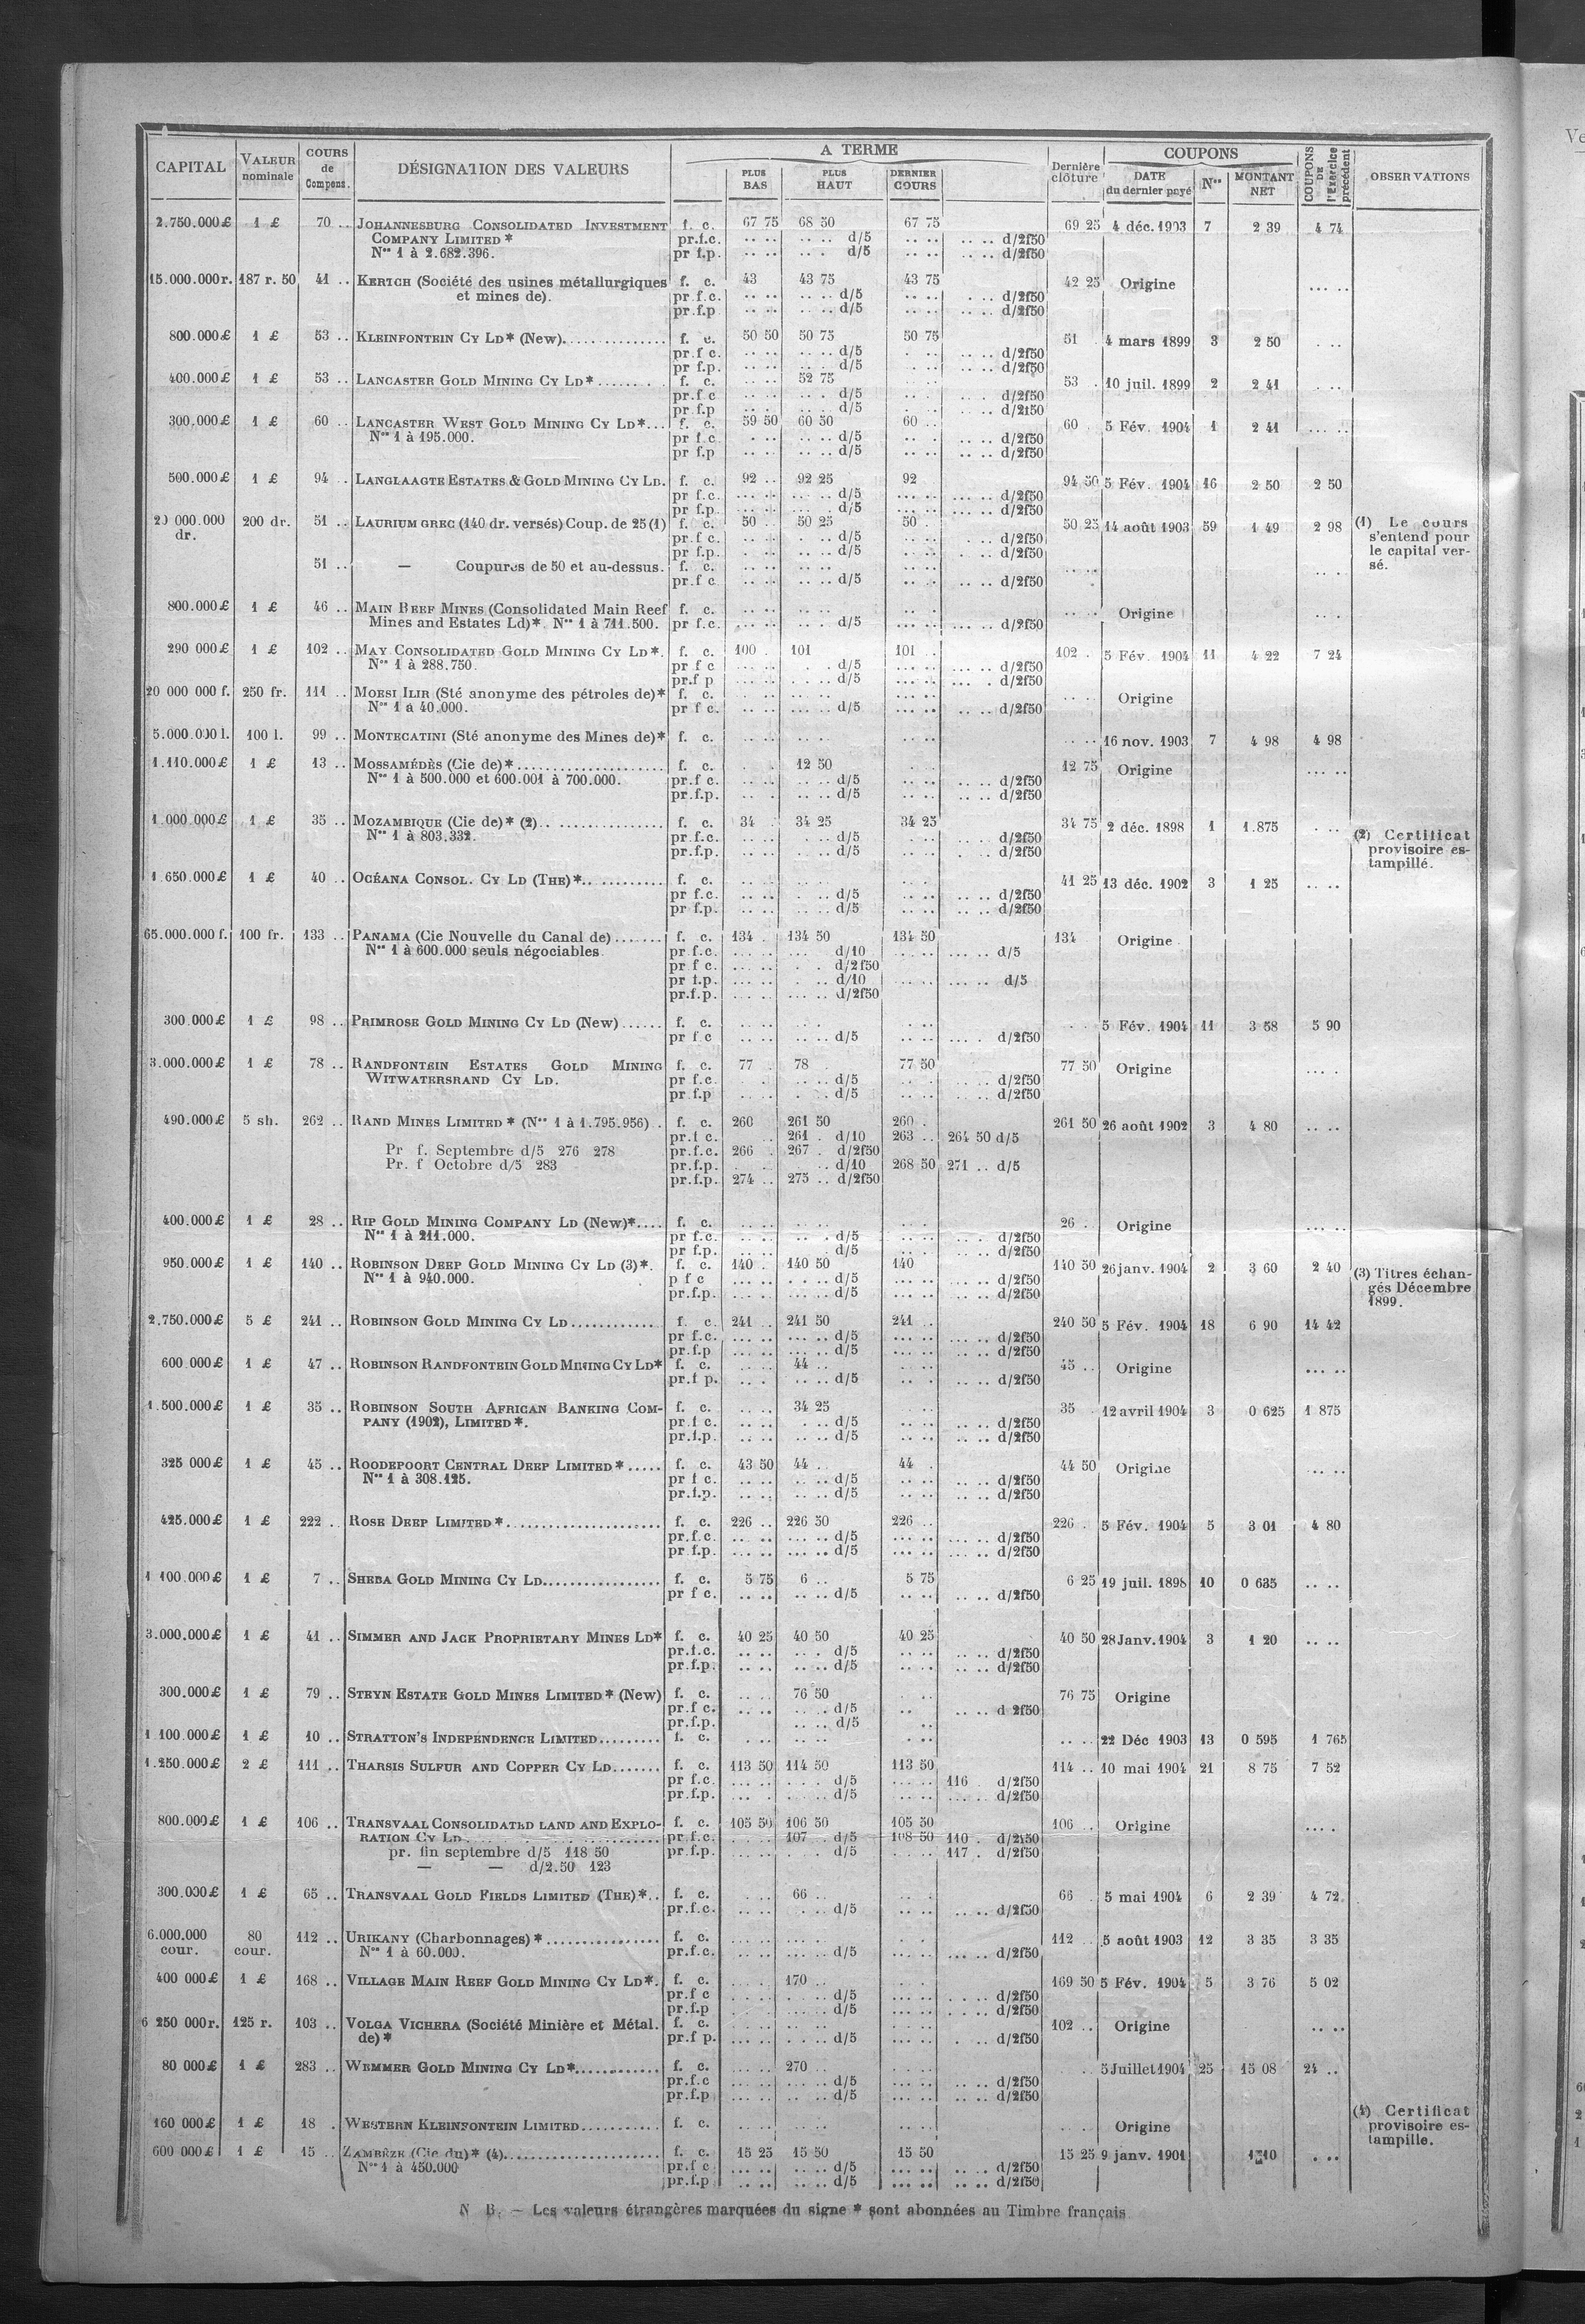 CAPITAL VALEUR nominale COURS de Compens. DÉSIGNATION DES VALEURS A TERME PLUS BAS PLUS HAUT DERNIER COURS Dernière clôture COUPONS DATE du dernier payé Nos MONTANT NET COUPONS DE l'Exercice précédent OBSERVATIONS
2.750.000£ 1 £ 70 .. JOHANNESBURG CONSOLIDATED INVESTMENT f. c. 67 75 68 50 67 75 69 25 4 déc. 1903 7 2 39 4 74
COMPANY LIMITED * pr.f.c. .. .. .. .. d/5 .. .. .. .. d/2f50
Nos 1 à 2.682.396. pr f.p. .. .. .. . d/5 .. .. .. .. d/2f50
15.000.000r. 187 r. 50 41 .. KERTCH (Société des usines métallurgiques f. c. 43 43 75 43 75 42 25 Origine ... ..
et mines de). pr f.c. .. .. .. .. d/5 .. .. . .. d/2f50
pr.f.p .. .. .. .. d/5 .. .. .. .. d/2f50
800.000£ 1 £ 53 .. KLEINFONTEIN CY LD* (New)............... f. c. 50 50 50 75 50 75 51 4 mars 1899 3 2 50 . ..
pr.f c. .. .. .. .. d/5 . .. .. .. d/2f50
pr f.p. .. .. .. . d/5 .. . .. .. d/2f50
400.000£ 1 £ 53 .. LANCASTER GOLD MINING CY LD*......... f. c. .. .. 52 75 .. 53 . 10 juil. 1899 2 2 41 . ..
pr.f c .. .. .. . d/5 .. . .. .. d/2f50
pr f.p .. .. .. .. d/5 . .. .. .. d/2f50
300.000£ 1 £ 60 .. LANCASTER WEST GOLD MINING CY LD*... f. c. 59 50 60 50 60 .. 60 . 5 Fév. 1904 1 2 41 ... ..
Nos 1 à 195.000. pr f.c. . .. .. .. d/5 .. . .. .. d/2f50
pr f.p .. .. .. .. d/5 .. .. .. .. d/2f50
500.000£ 1 £ 94 .. LANGLAAGTE ESTATES & GOLD MINING CY LD. f. c. 92 .. 92 25 92 94 50 5 Fév. 1904 16 2 50 2 50
pr f.c. ... .. .. .. d/5 ... .. ... .. d/2f50
pr f.p. ... .. .. . d/5 ... .. ... .. d/2f50
20 000.000 200 dr. 51 .. LAURIUM GREC (140 dr. versés) Coup. de 25 (1) f. c. 50 .. 50 25 50 . 50 25 14 août 1903 59 1 49 2 98 (1) Le cours
dr. pr.f c. .. .. . .. d/5 .. .. . .. d/2f50 s'entend pour
pr f.p. . .. .. .. d/5 .. .. . .. d/2f50 le capital ver-
51 .. — Coupures de 50 et au-dessus. f. c. .. .. .. .. .. .. .. .. sé.
pr.f c .. .. .. .. d/5 .. .. .. .. d/2f50 .. .
800.000£ 1 £ 46 .. MAIN REEF MINES (Consolidated Main Reef f. c. .. .. .. .. .. . .. .. Origine .. .
Mines and Estates Ld)*. Nos 1 à 711.500. pr f.c. ... .. .. .. d/5 ... .. ... .. d/2f50
290 000£ 1 £ 102 .. MAY CONSOLIDATED GOLD MINING CY LD*. f. c. 100 . 101 101 .. 102 . 5 Fév. 1904 11 4 22 7 24
Nos 1 à 288.750. pr f c ... .. . .. d/5 ... .. ... .. d/2f50
pr.f p ... .. . .. d/5 ... .. ... . d/2f50
20 000 000 f. 250 fr. 111 .. MOESI ILIR (Sté anonyme des pétroles de)* f. c. .. .. ... .. ... .. .. .. Origine
Nos 1 à 40.000. pr f c. ... .. ... .. d/5 ... .. .. .. d/2f50
5.000.000 l. 100 l. 99 .. MONTECATINI (Sté anonyme des Mines de)* f. c. .. .. .. .. .. .. .. .. 16 nov. 1903 7 4 98 4 98
1.110.000£ 1 £ 13 .. MOSSAMÉDÈS (Cie de)*..................... f. c. . . 12 50 12 75 Origine ... ..
Nos 1 à 500.000 et 600.001 à 700.000. pr.f c. .. .. .. .. d/5 .. .. .. .. d/2f50
pr.f.p. .. . .. .. d/5 .. .. .. .. d/2f50
1.000.000£ 1 £ 35 .. MOZAMBIQUE (Cie de)* (2)................. f. c. 34 34 25 34 25 34 75 2 déc. 1898 1 1.875 . .. (2) Certificat
Nos 1 à 803.332. pr.f.c. .. .. . .. d/5 . .. .. . d/2f50 provisoire es-
pr.f.p. .. .. . .. d/5 .. .. . .. d/2f50 tampillé.
1.650.000£ 1 £ 40 .. OCÉANA CONSOL. CY LD (THE)*........... f. c. .. .. .. .. .. . 41 25 13 déc. 1902 3 1 25 .. ..
pr f.c. .. .. . .. d/5 .. .. .. .. d/2f50
pr f.p. .. .. . .. d/5 .. .. .. .. d/2f50
65.000.000 f. 100 fr. 133 .. PANAMA (Cie Nouvelle du Canal de)....... f. c. 134 . 134 50 134 50 134 Origine
Nos 1 à 600.000 seuls négociables. pr.f.c. ... .. ... d/10 ... .. ... .. d/5
pr f c. ... .. . . d/2f50
pr f.p. ... .. . .. d/10 ... .. ... .. d/5
pr.f.p. ... .. ... .. d/2f50
300.000£ 1 £ 98 .. PRIMROSE GOLD MINING CY LD (New)...... f. c. .. .. .. . .. .. . . 5 Fév. 1904 11 3 58 5 90
pr f c .. .. .. .. d/5 .. .. ... . d/2f50
3.000.000£ 1 £ 78 .. RANDFONTEIN ESTATES GOLD MINING f. c. 77 . 78 . 77 50 77 50 Origine ... .
WITWATERSRAND CY LD. pr f.c. . . .. .. d/5 .. . .. .. d/2f50
pr f.p .. . .. . d/5 .. .. .. .. d/2f50
490.000£ 5 sh. 262 .. RAND MINES LIMITED * (Nos 1 à 1.795.956) . f. c. 260 261 50 260 . 261 50 26 août 1902 3 4 80 .. ..
pr.f c. .. 261 . d/10 263 .. 264 50 d/5
Pr f. Septembre d/5 276 278 pr.f.c. 266 . 267 . d/2f50
Pr. f Octobre d/5 283 pr.f.p. . . .. d/10 268 50 271 .. d/5
pr.f.p. 274 .. 275 .. d/2f50
400.000£ 1 £ 28 .. RIP GOLD MINING COMPANY LD (New)*.... f. c. .. .. .. .. .. . 26 . Origine ... ..
Nos 1 à 211.000. pr f.c. .. .. .. . d/5 .. .. .. . d/2f50
pr f.p. .. .. . d/5 .. . .. .. d/2f50
950.000£ 1 £ 140 .. ROBINSON DEEP GOLD MINING CY LD (3)*. f. c. 140 . 140 50 140 140 50 26 janv. 1904 2 3 60 2 40 (3) Titres échan-
Nos 1 à 940.000. p f c ... .. . .. d/5 ... .. ... .. d/2f50 gés Décembre
pr.f.p. ... .. ... .. d/5 ... .. .. .. d/2f50 1899.
2.750.000£ 5 £ 241 .. ROBINSON GOLD MINING CY LD............ f. c. 241 .. 241 50 241 .. 240 50 5 Fév. 1904 18 6 90 14 42
pr f.c. ... .. ... .. d/5 ... .. ... .. d/2f50
pr.f.p ... .. ... .. d/5 ... .. ... .. d/2f50
600.000£ 1 £ 47 .. ROBINSON RANDFONTEIN GOLD MINING CY LD* f. c. .. .. 44 .. .. .. 45 .. Origine ... ..
pr.f p. .. . .. .. d/5 .. . .. .. d/2f50
1.500.000£ 1 £ 35 .. ROBINSON SOUTH AFRICAN BANKING COM- f. c. .. .. 34 25 .. 35 . 12 avril 1904 3 0 625 1 875
PANY (1902), LIMITED*. pr.f c. .. .. . .. d/5 .. .. .. .. d/2f50
pr.f.p. .. .. .. .. d/5 .. .. .. .. d/2f50
325 000£ 1 £ 45 .. ROODEPOORT CENTRAL DEEP LIMITED*..... f. c. 43 50 44 .. 44 . 44 50 Origine .. ..
Nos 1 à 308.125. pr f c. .. .. .. .. d/5 .. .. .. .. d/2f50
pr.f.p. .. .. .. .. d/5 .. .. .. .. d/2f50
425.000£ 1 £ 222 .. ROSE DEEP LIMITED*...................... f. c. 226 .. 226 50 226 .. 226 . 5 Fév. 1904 5 3 01 4 80
pr.f.c. .. .. ... .. d/5 ... .. ... .. d/2f50
pr f.p. ... .. ... .. d/5 ... .. ... .. d/2f50
1 100.000£ 1 £ 7 .. SHEBA GOLD MINING CY LD................. f. c. 5 75 6 .. 5 75 6 25 19 juil. 1898 10 0 635 .. ..
pr f c. .. .. .. .. d/5 .. .. .. .. d/2f50
3.000.000£ 1 £ 41 .. SIMMER AND JACK PROPRIETARY MINES LD* f. c. 40 25 40 50 40 25 40 50 28 Janv. 1904 3 1 20 .. ..
pr.f.c. .. .. .. . d/5 .. .. .. .. d/2f50
pr.f.p. .. .. .. .. d/5 .. .. .. .. d/2f50
300.000£ 1 £ 79 .. STEYN ESTATE GOLD MINES LIMITED* (New) f. c. .. .. 76 50 .. 76 75 Origine
pr.f c. .. .. .. .. d/5 .. .. .. d 2f50
pr.f.p. .. .. d/5 ..
1 100.000£ 1 £ 10 .. STRATTON'S INDEPENDENCE LIMITED......... f. c. .. .. .. .. .. .. .. 22 Déc 1903 13 0 595 1 765
1.250.000£ 2 £ 111 .. THARSIS SULFUR AND COPPER CY LD....... f. c. 113 50 114 50 113 50 114 .. 10 mai 1904 21 8 75 7 52
pr f.c. ... .. . .. d/5 ... .. 116 . d/2f50
pr.f.p. ... . . .. d/5 ... .. ... .. d/2f50
800.000£ 1 £ 106 .. TRANSVAAL CONSOLIDATED LAND AND EXPLO- f. c. 105 50 106 50 105 50 106 .. Origine ... .
RATION CY LD............................. pr.f.c. . .. 107 . d/5 108 50 110 . d/2f50
pr. fin septembre d/5 118 50 pr.f.p. . .. . .. d/5 . .. .. 117 . d/2f50
— — d/2.50 123
300.000£ 1 £ 65 .. TRANSVAAL GOLD FIELDS LIMITED (THE)*.. f. c. . .. 66 .. .. . 66 . 5 mai 1904 6 2 39 4 72
pr.f.c. .. .. . .. d/5 .. .. .. .. d/2f50
6.000.000 80 112 .. URIKANY (Charbonnages)*................ f. c. .. .. ... .. . . 112 .. 5 août 1903 12 3 35 3 35
cour. cour. Nos 1 à 60.000. pr.f.c. ... .. ... .. d/5 ... .. ... .. d/2f50
400 000£ 1 £ 168 .. VILLAGE MAIN REEF GOLD MINING CY LD*. f. c. . .. 170 .. .. . 169 50 5 Fév. 1904 5 3 76 5 02
pr.f c . .. .. .. d/5 ... .. . .. d/2f50
pr.f.p . .. .. .. d/5 ... .. . .. d/2f50
6 250 000r. 125 r. 103 .. VOLGA VICHERA (Société Minière et Métal. f. c. .. .. ... .. .. .. 102 .. Origine .. ..
de)* pr.f p. ... .. ... .. d/5 ... .. . .. d/2f50
80 000£ 1 £ 283 .. WEMMER GOLD MINING CY LD*............ f. c. ... .. 270 .. .. .. . .. 5 Juillet 1904 25 15 08 24 ..
pr.f.c ... .. ... .. d/5 ... .. .. .. d/2f50
pr.f.p ... .. ... .. d/5 ... .. .. .. d/2f50
160 000£ 1 £ 18 . WESTERN KLEINFONTEIN LIMITED........... f. c. .. .. .. .. .. .. . . Origine (4) Certificat
600 000£ 1 £ 15 .. ZAMBÈZE (Cie du)* (4)...................... f. c. 15 25 15 50 15 50 15 25 9 janv. 1901 10 . .. provisoire es-
Nos 1 à 450.000 pr.f c ... .. .. .. d/5 ... .. .. .. d/2f50 tampille.
pr.f.p .. .. .. .. d/5 ... .. .. .. d/2f50
N. B. — Les valeurs étrangères marquées du signe * sont abonnées au Timbre français